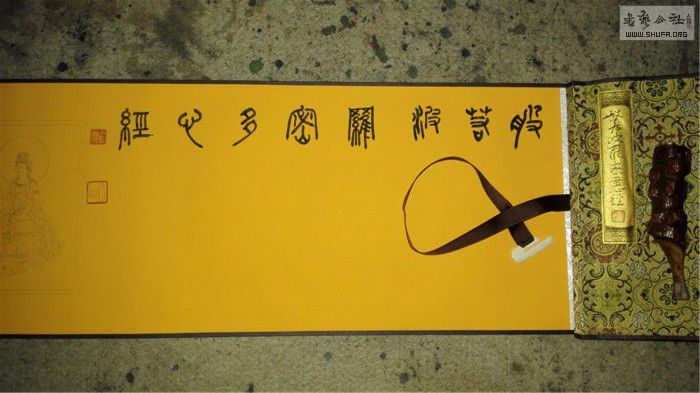 般若波羅密多心經
書藝公社
WWW.SHUFA.ORG